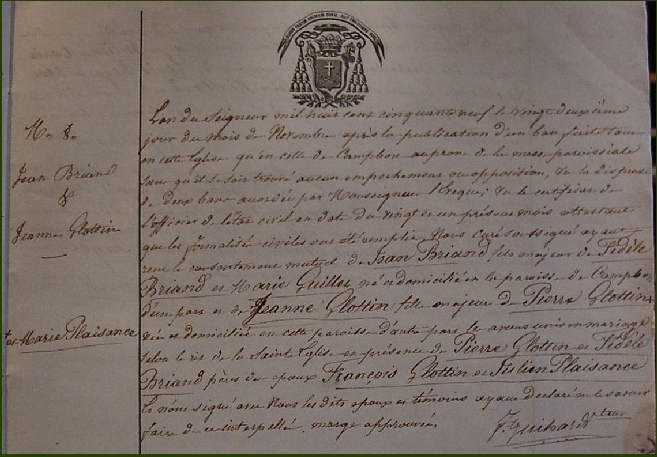 Mge de
Jean Briand
&
Jeanne Glottin
et Marie Plaisance
L'an du Seigneur mil huit cent cinquante neuf le vingt deuxième
jour du mois de Novembre après la publication d'un ban faite tant
en cette Eglise qu'en celle de Campbon au prone de la messe paroissiale
sans qu'il se soit trouvé aucun empechement ou opposition, Vu la dispense
de deux bans accordée par Monseigneur l'Evêque, Vu le certificat de
l'officier de l'état civil en dat du vingt et un présent mois attestant
que les formalités civiles ont été remplies Nous curé soussigné ayant
recu le consentement mutuel de Jean Briand fils majeur de Fidèle
Briand et Marie Guillet né et domicilié en la paroisse de Campbon
d'une part et de Jeanne Glottin fille majeure de Pierre Glottin
née et domiciliée en cette paroisse d'autre part les avons unis en mariage
selon le rit de la Sainte Eglise en présence de Pierre Glottin et Fidèle
Briand pères des epoux François Glottin et Plaisance
signé avec Nous les dits epoux et témoins ayant declaré ne le savoir
faire de ce interpellé, marge approuvée.